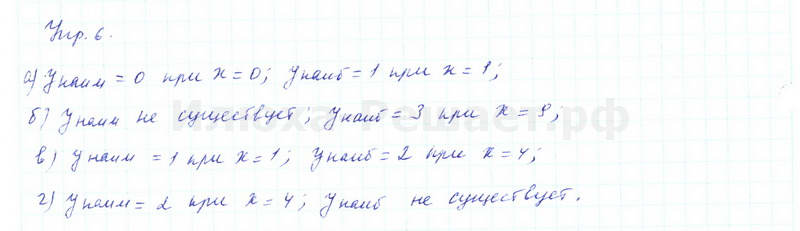 Упр. 6.
а) Yнаим = 0 при x = 0; Yнаиб = 1 при x = 1;
б) Yнаим не существует; Yнаиб = 3 при x = 9;
в) Yнаим = 1 при x = 1; Yнаиб = 2 при x = 4;
г) Yнаим = 2 при x = 4; Yнаиб не существует.
Илюха-Решает.рф